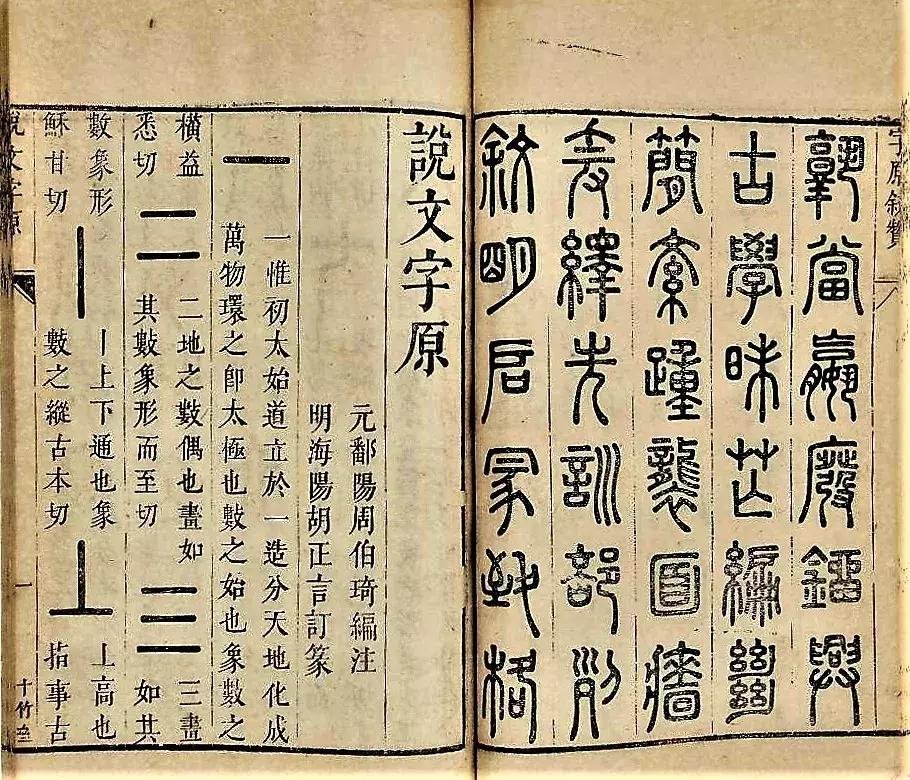 字原敘贊
當嬴廢
古學昧芒編
簡素踵襲面牆
爰繹先訓部別
敘明启冡致格
說文字原
元鄱陽周伯琦編注
明海陽胡正言訂篆
一
一惟初太始道立於一造分天地化成
萬物環之卽太極也數之始也象數之
橫益
悉切
二
二地之數偶也畫如
其數象形而至切
三
三畫
如其
數象形
穌甘切
丨
丨上下通也象
數之縱古本切
丄
丄高也
指事古
說文字原
一
十竹齋